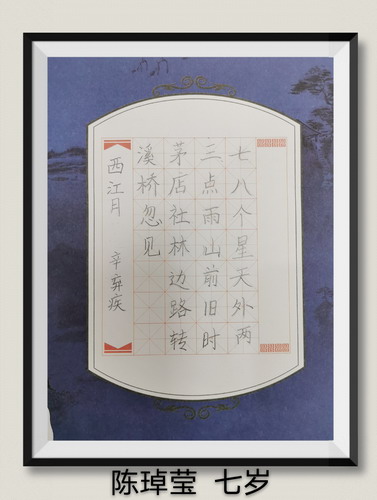 七八个星天外两
三点雨山前旧时
茅店社林边路转
溪桥忽见
西江月 辛弃疾
陈琸莹 七岁